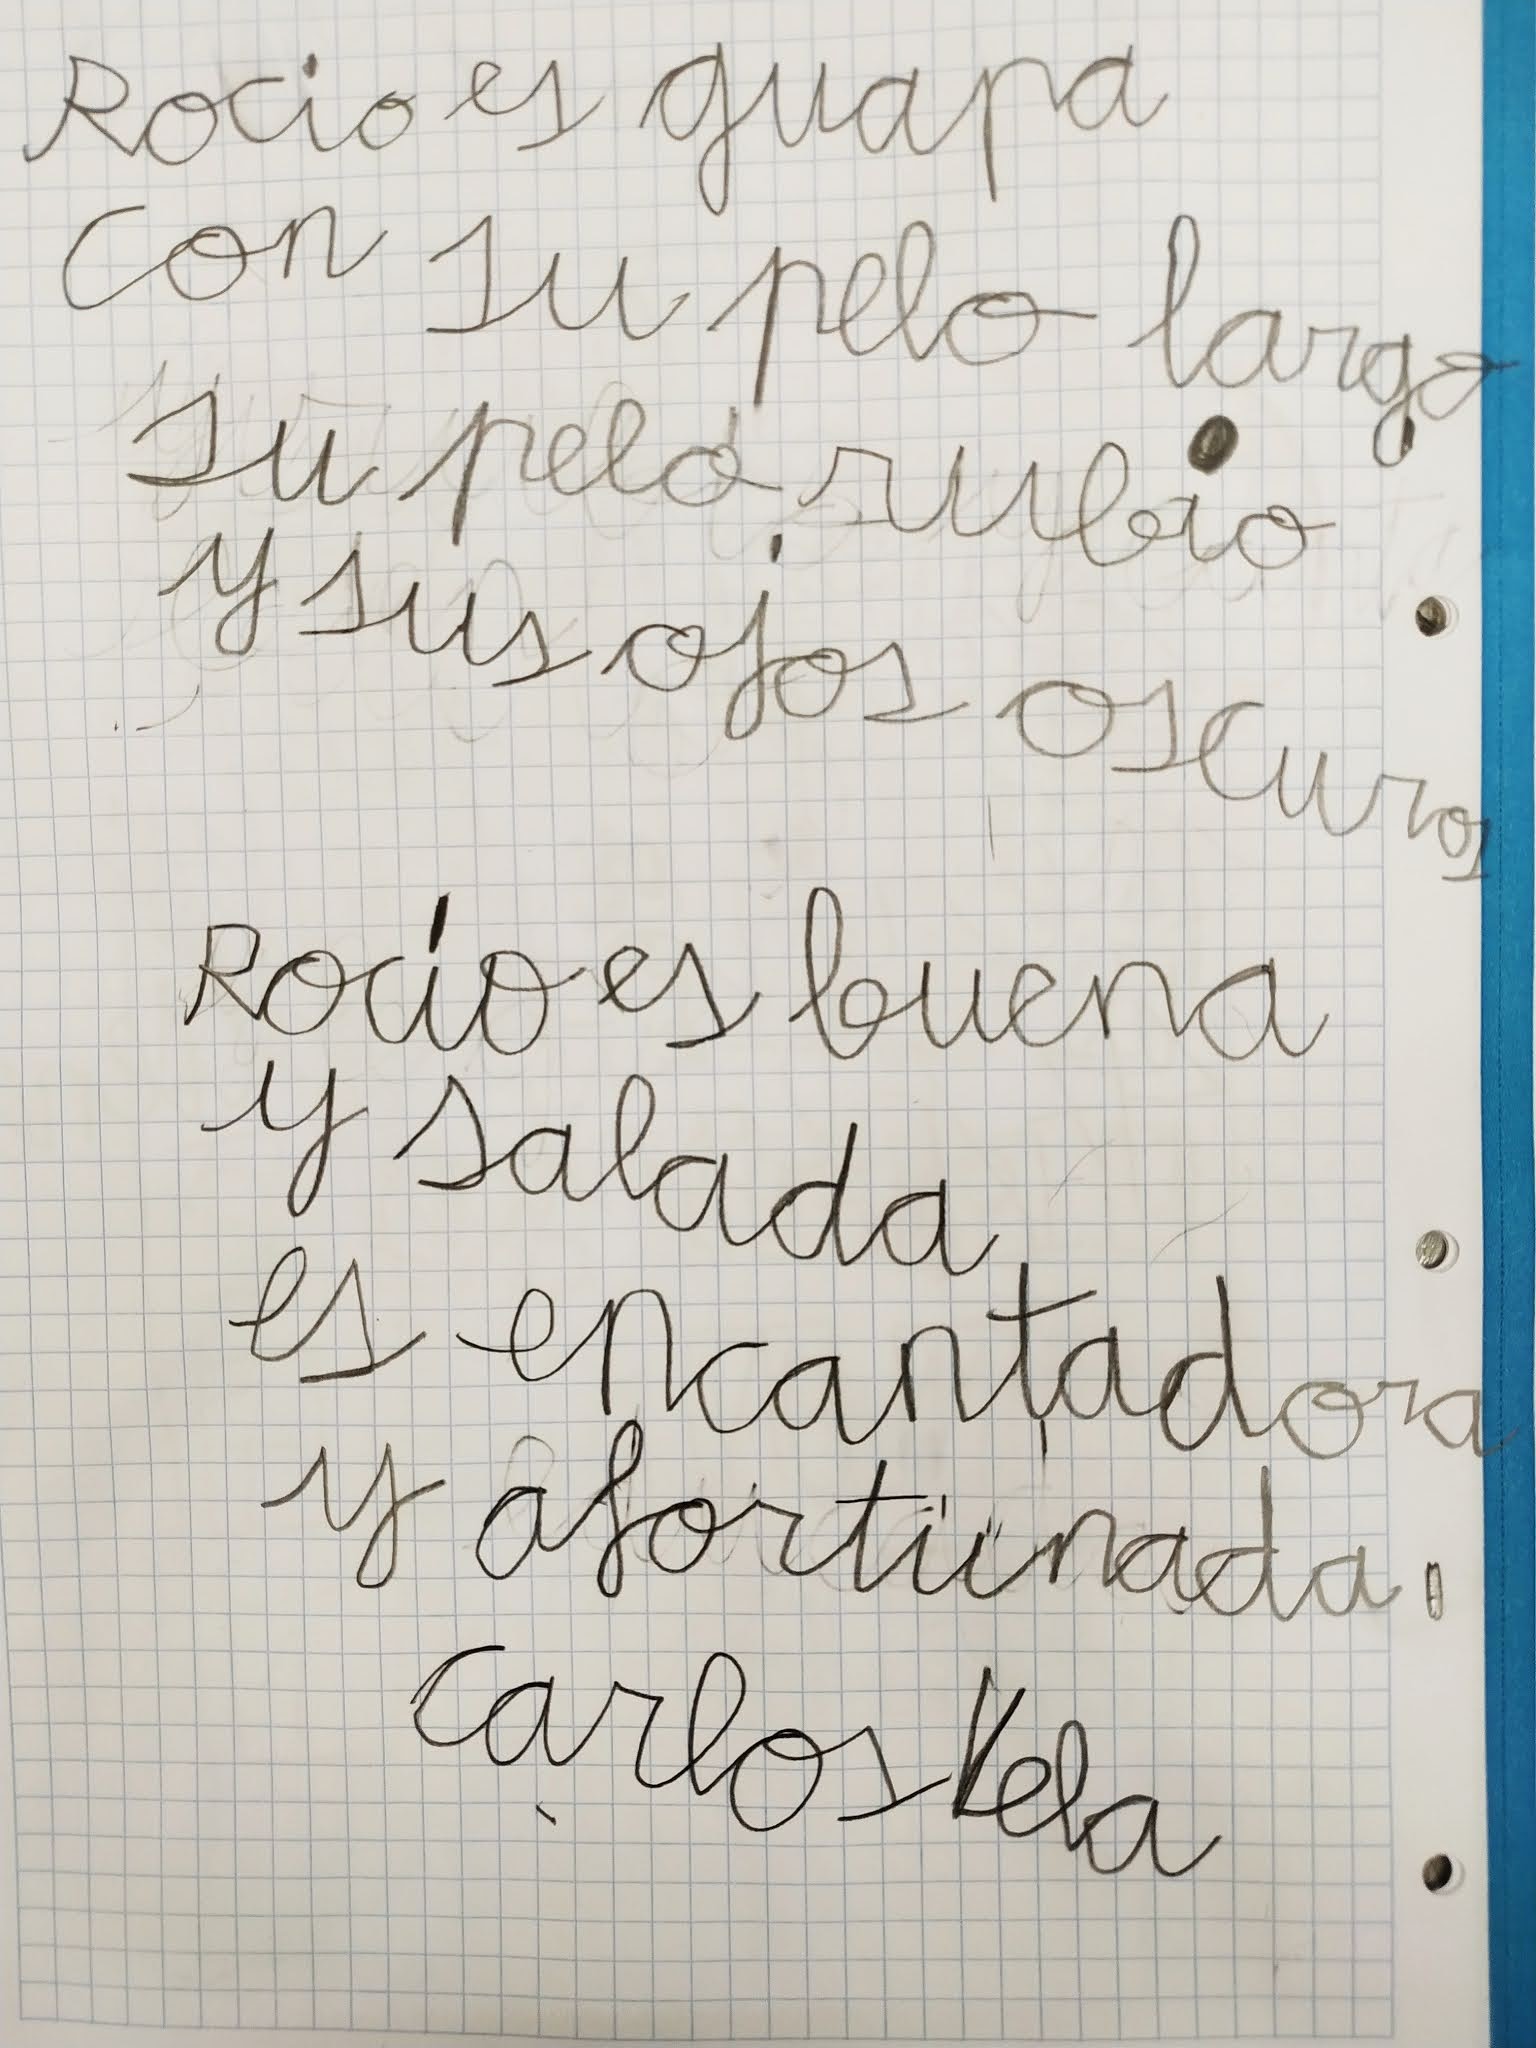 Rocio es guapa
con su pelo largo
su pelo rubio
y sus ojos oscuros
Rocío es buena
y salada
es encantadora
y afortunada.
Carlos Vela